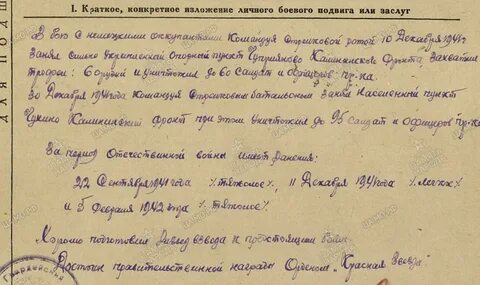 I. Краткое, конкретное изложение личного боевого подвига или заслуг
В бою с немецкими оккупантами командуя стрелковой ротой 10 Декабря 1941г
занял сильно укрепленный опорный пункт Куприяново Калининского фронта, захватил
трофеи: 6 орудий и уничтожил до 80 солдат и офицеров пр-ка.
30 Декабря 1941 года командуя стрелковым батальоном занял населенный пункт
Калининский фронт при этом уничтожил до 95 солдат и офицеров пр-ка
За период Отечественной войны имеет ранения:
22 Сентября 1941 года /тяжелое/, 11 Декабря 1941 года /легкое/
и 5 Февраля 1942 года /тяжелое/
Хорошо подготовил взвода к предстоящим боям.
Достоин правительственной награды Орденом "Красная Звезда".
ДЛЯ ПОДШ
Гвардейский